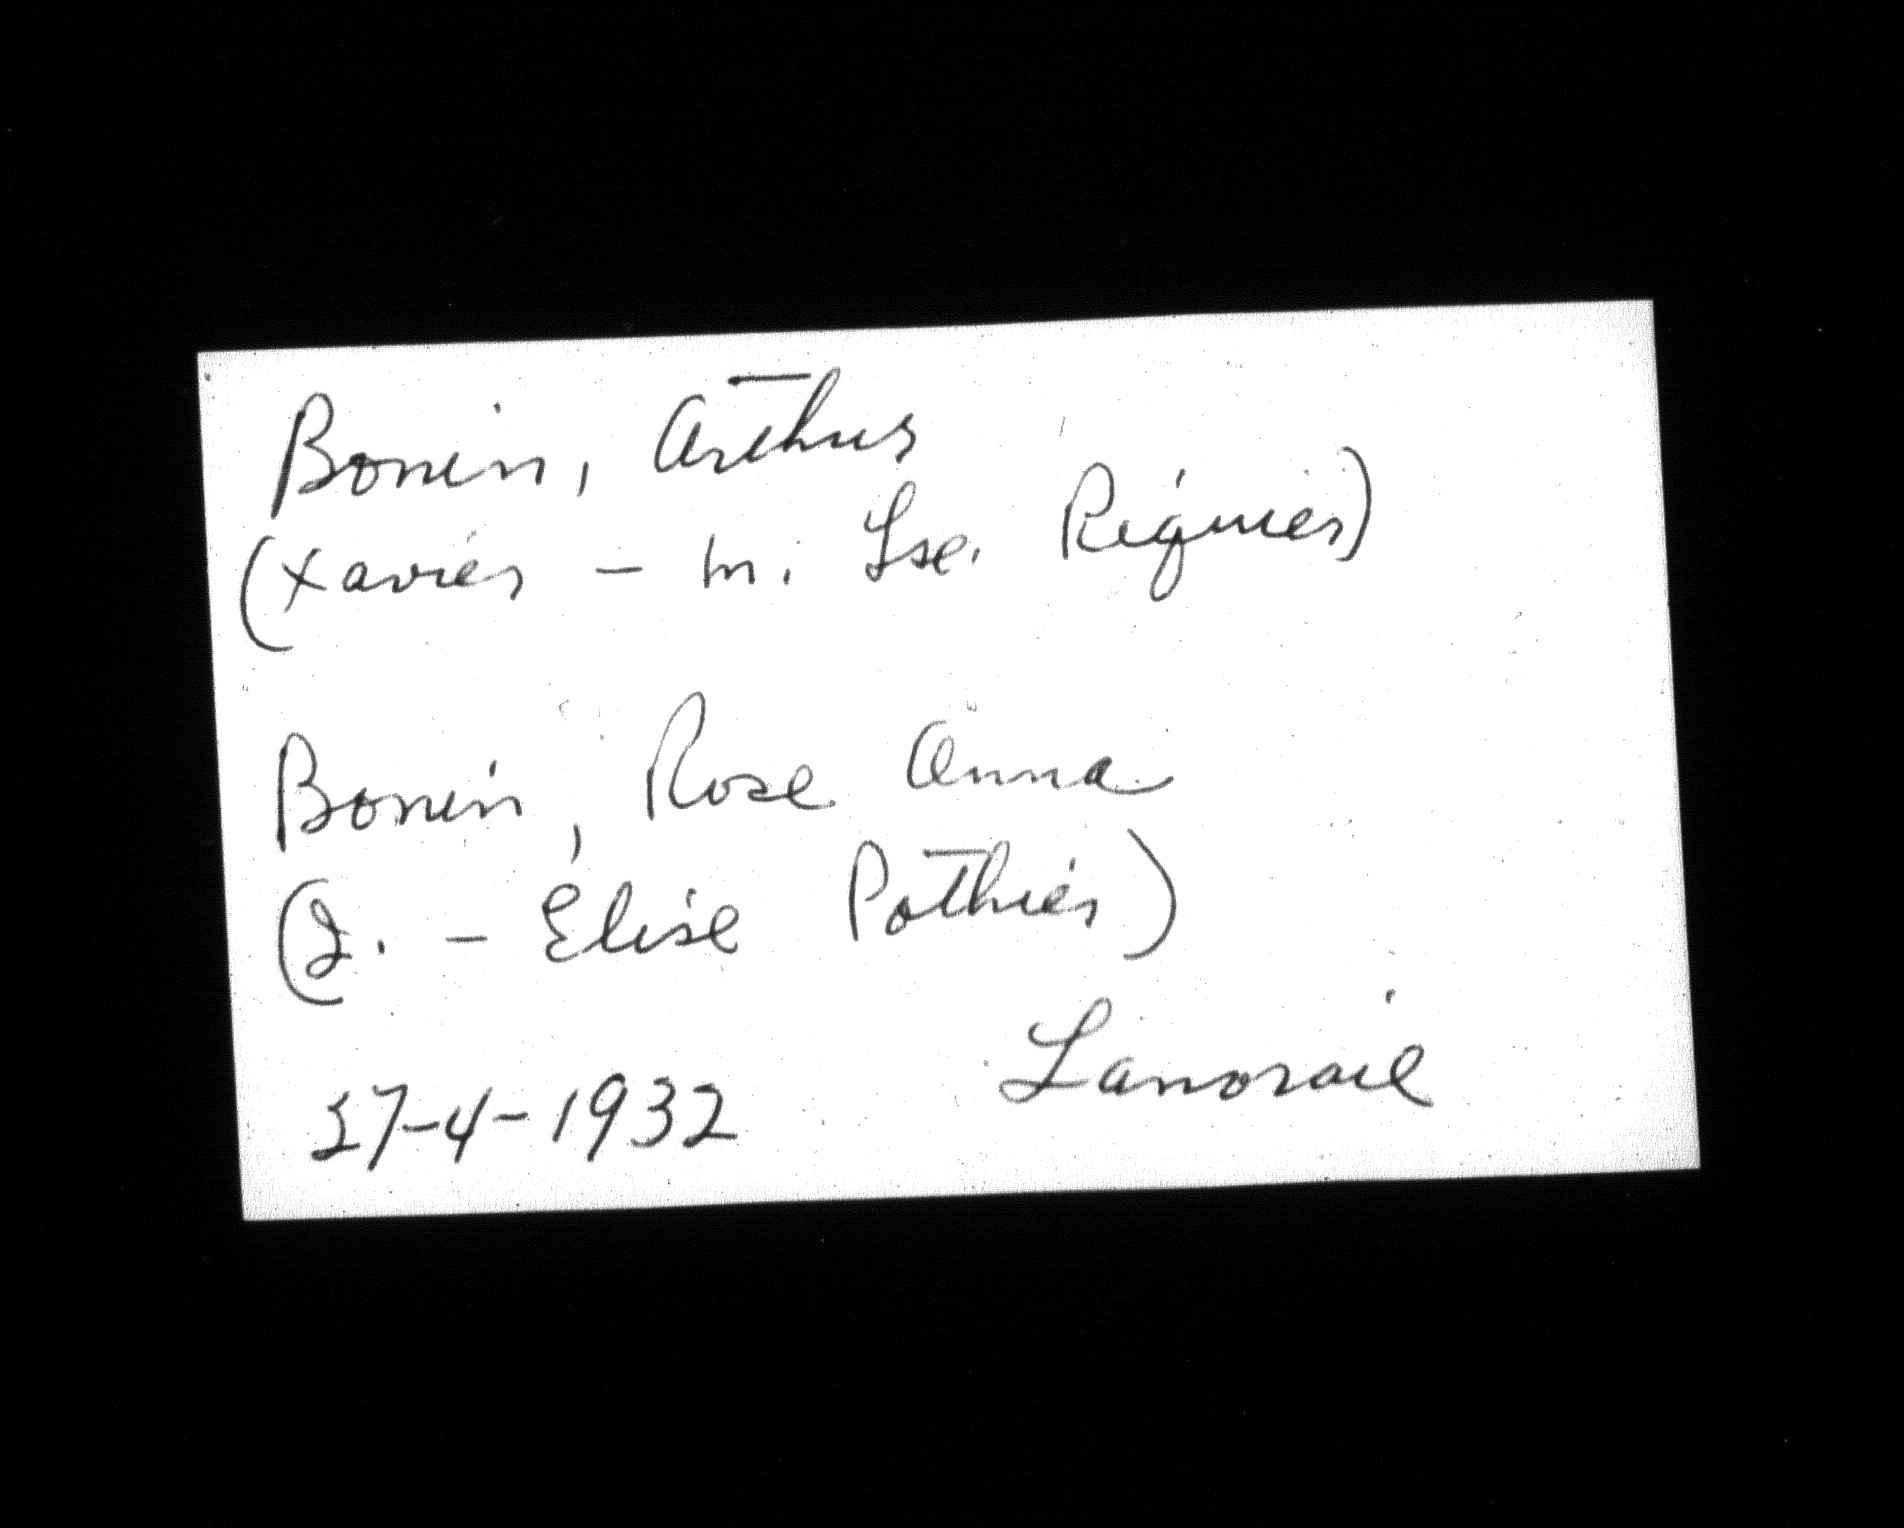 Bonin, Arthur
(Xavier - m. Lse. Riguier)
Bonin, Rose Anna
(J. - Élise Pothier)
27-4-1932 Lanoraie